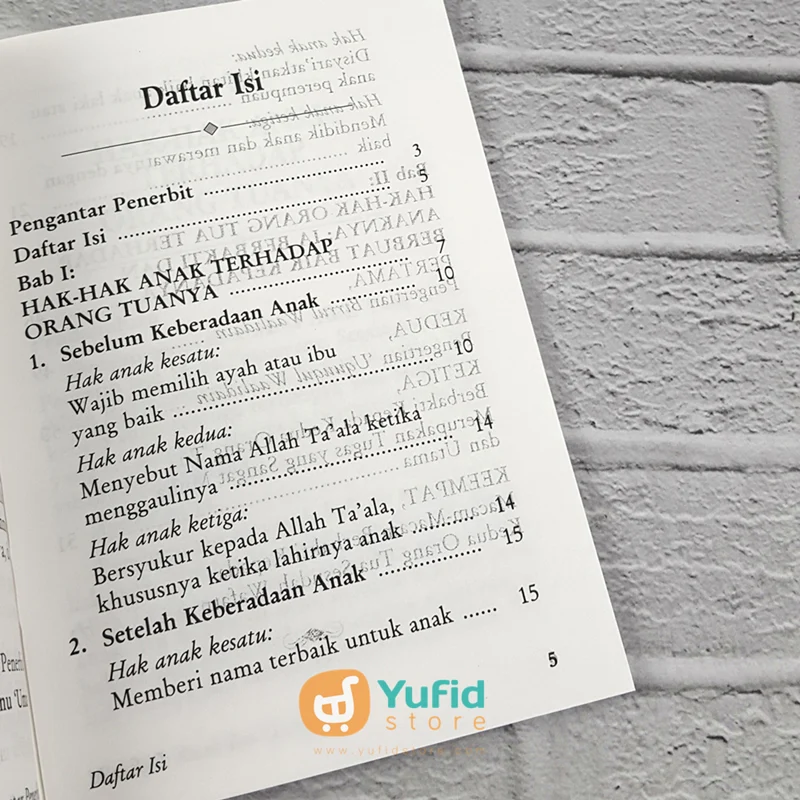 Daftar Isi
Pengantar Penerbit ........................... 3
Daftar Isi ........................................ 5
Bab I:
HAK-HAK ANAK TERHADAP
ORANG TUANYA ........................... 7
1. Sebelum Keberadaan Anak ............. 10
Hak anak kesatu:
Wajib memilih ayah atau ibu
yang baik ........................................ 10
Hak anak kedua:
Menyebut Nama Allah Ta'ala ketika
menggaulinya .................................. 14
Hak anak ketiga:
Bersyukur kepada Allah Ta'ala,
khususnya ketika lahirnya anak .......... 14
2. Setelah Keberadaan Anak ................ 15
Hak anak kesatu:
Memberi nama terbaik untuk anak ...... 15
5
Daftar Isi
Yufid
store